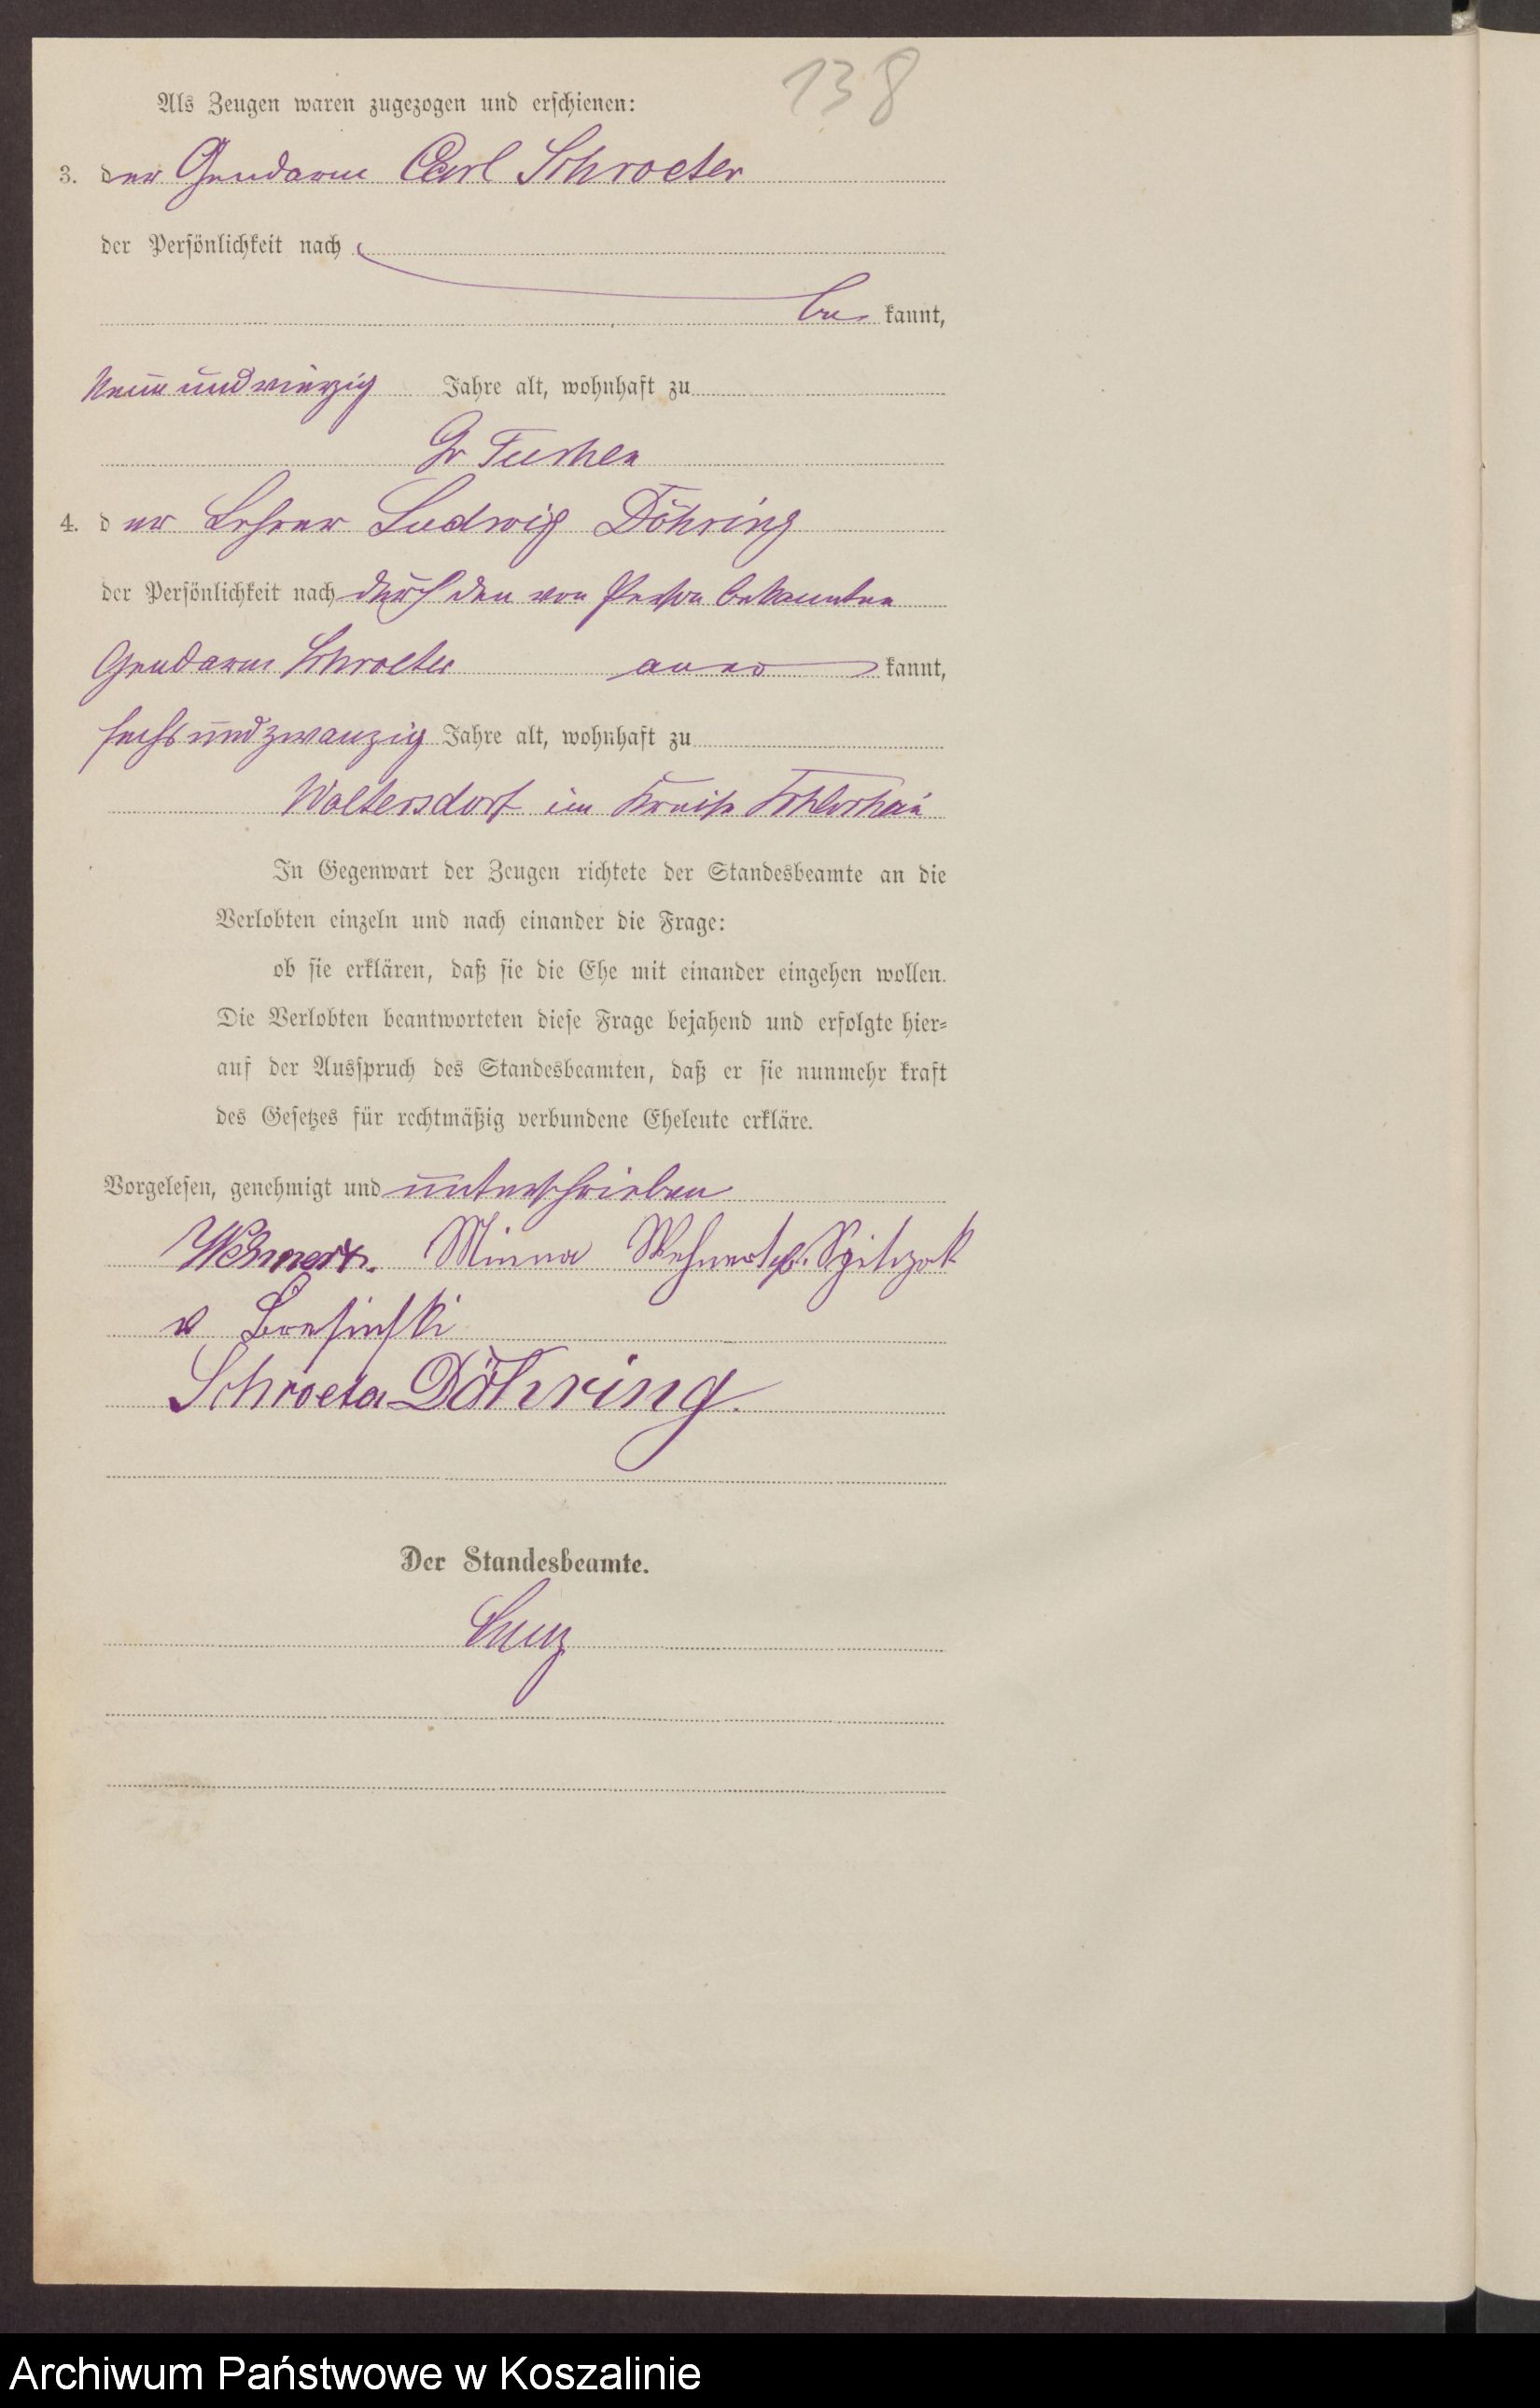 138
Als Zeugen waren zugezogen und erschienen:
3. der Gendarm Carl Schroeter
der Persönlichkeit nach
be kannt,
neun und vierzig Jahre alt, wohnhaft zu
Gr Tuchen
4. der Lehrer Ludwig Döhring
der Persönlichkeit nach durch den von Person bekannten
Gendarm Schroeter aner kannt,
sechs und zwanzig Jahre alt, wohnhaft zu
Woltersdorf im Kreise Schlochau
In Gegenwart der Zeugen richtete der Standesbeamte an die
Verlobten einzeln und nach einander die Frage:
ob sie erklären, daß sie die Ehe mit einander eingehen wollen.
Die Verlobten beantworteten diese Frage bejahend und erfolgte hier=
auf der Ausspruch des Standesbeamten, daß er sie nunmehr kraft
des Gesetzes für rechtmäßig verbundene Eheleute erkläre.
Vorgelesen, genehmigt und unterschrieben
Wehnert. Minna Wehnert
v
Schroeter Döhring.
Der Standesbeamte.
Archiwum Państwowe w Koszalinie